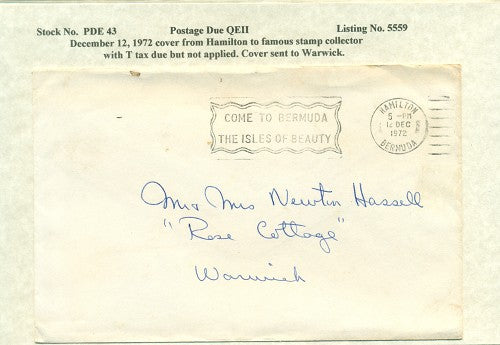 Stock No. PDE 43 Postage Due QEII Listing No. 5559
December 12, 1972 cover from Hamilton to famous stamp collector
with T tax due but not applied. Cover sent to Warwick.
COME TO BERMUDA
THE ISLES OF BEAUTY
HAMILTON
5 - PM
12 DEC
1972
BERMUDA
Mr & Mrs Newton Hassell
"Rose Cottage"
Warwick